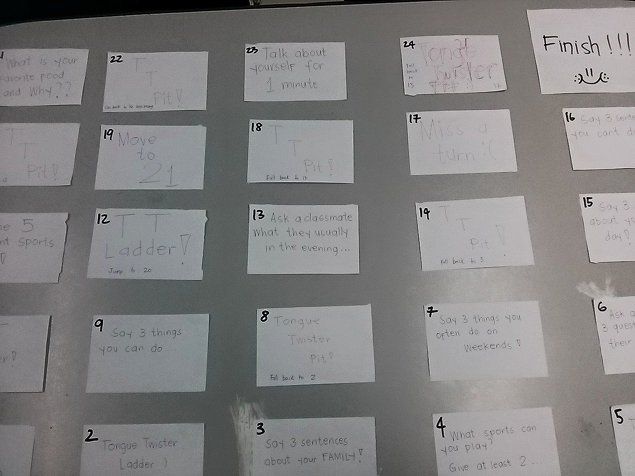 What is your
favorite food
and Why??
22
T
T
Pit!
23
Talk about
yourself for
1 minute
24
Tongue
twister
Finish!!!
Pit!
19
Move
to
21
18
T
T
Pit!
17
Miss a
turn :(
16
Say 3
you can't do
5
sports
12
T T
Ladder!
Jump to 20
13
Ask a classmate
what they usually
in the evening...
14
T
T
Pit!
Fall back to 3
15
Say 3
about your
day?
9
Say 3 things
you can do
8
Tongue
Twister
Pit!
Fall back to 2
7
Say 3 things you
often do on
weekends!
6
Ask
3
their
2
Tongue Twister
Ladder :)
3
Say 3 sentences
about your FAMILY!
4
What sports can
you play?
Give at least 2.
5